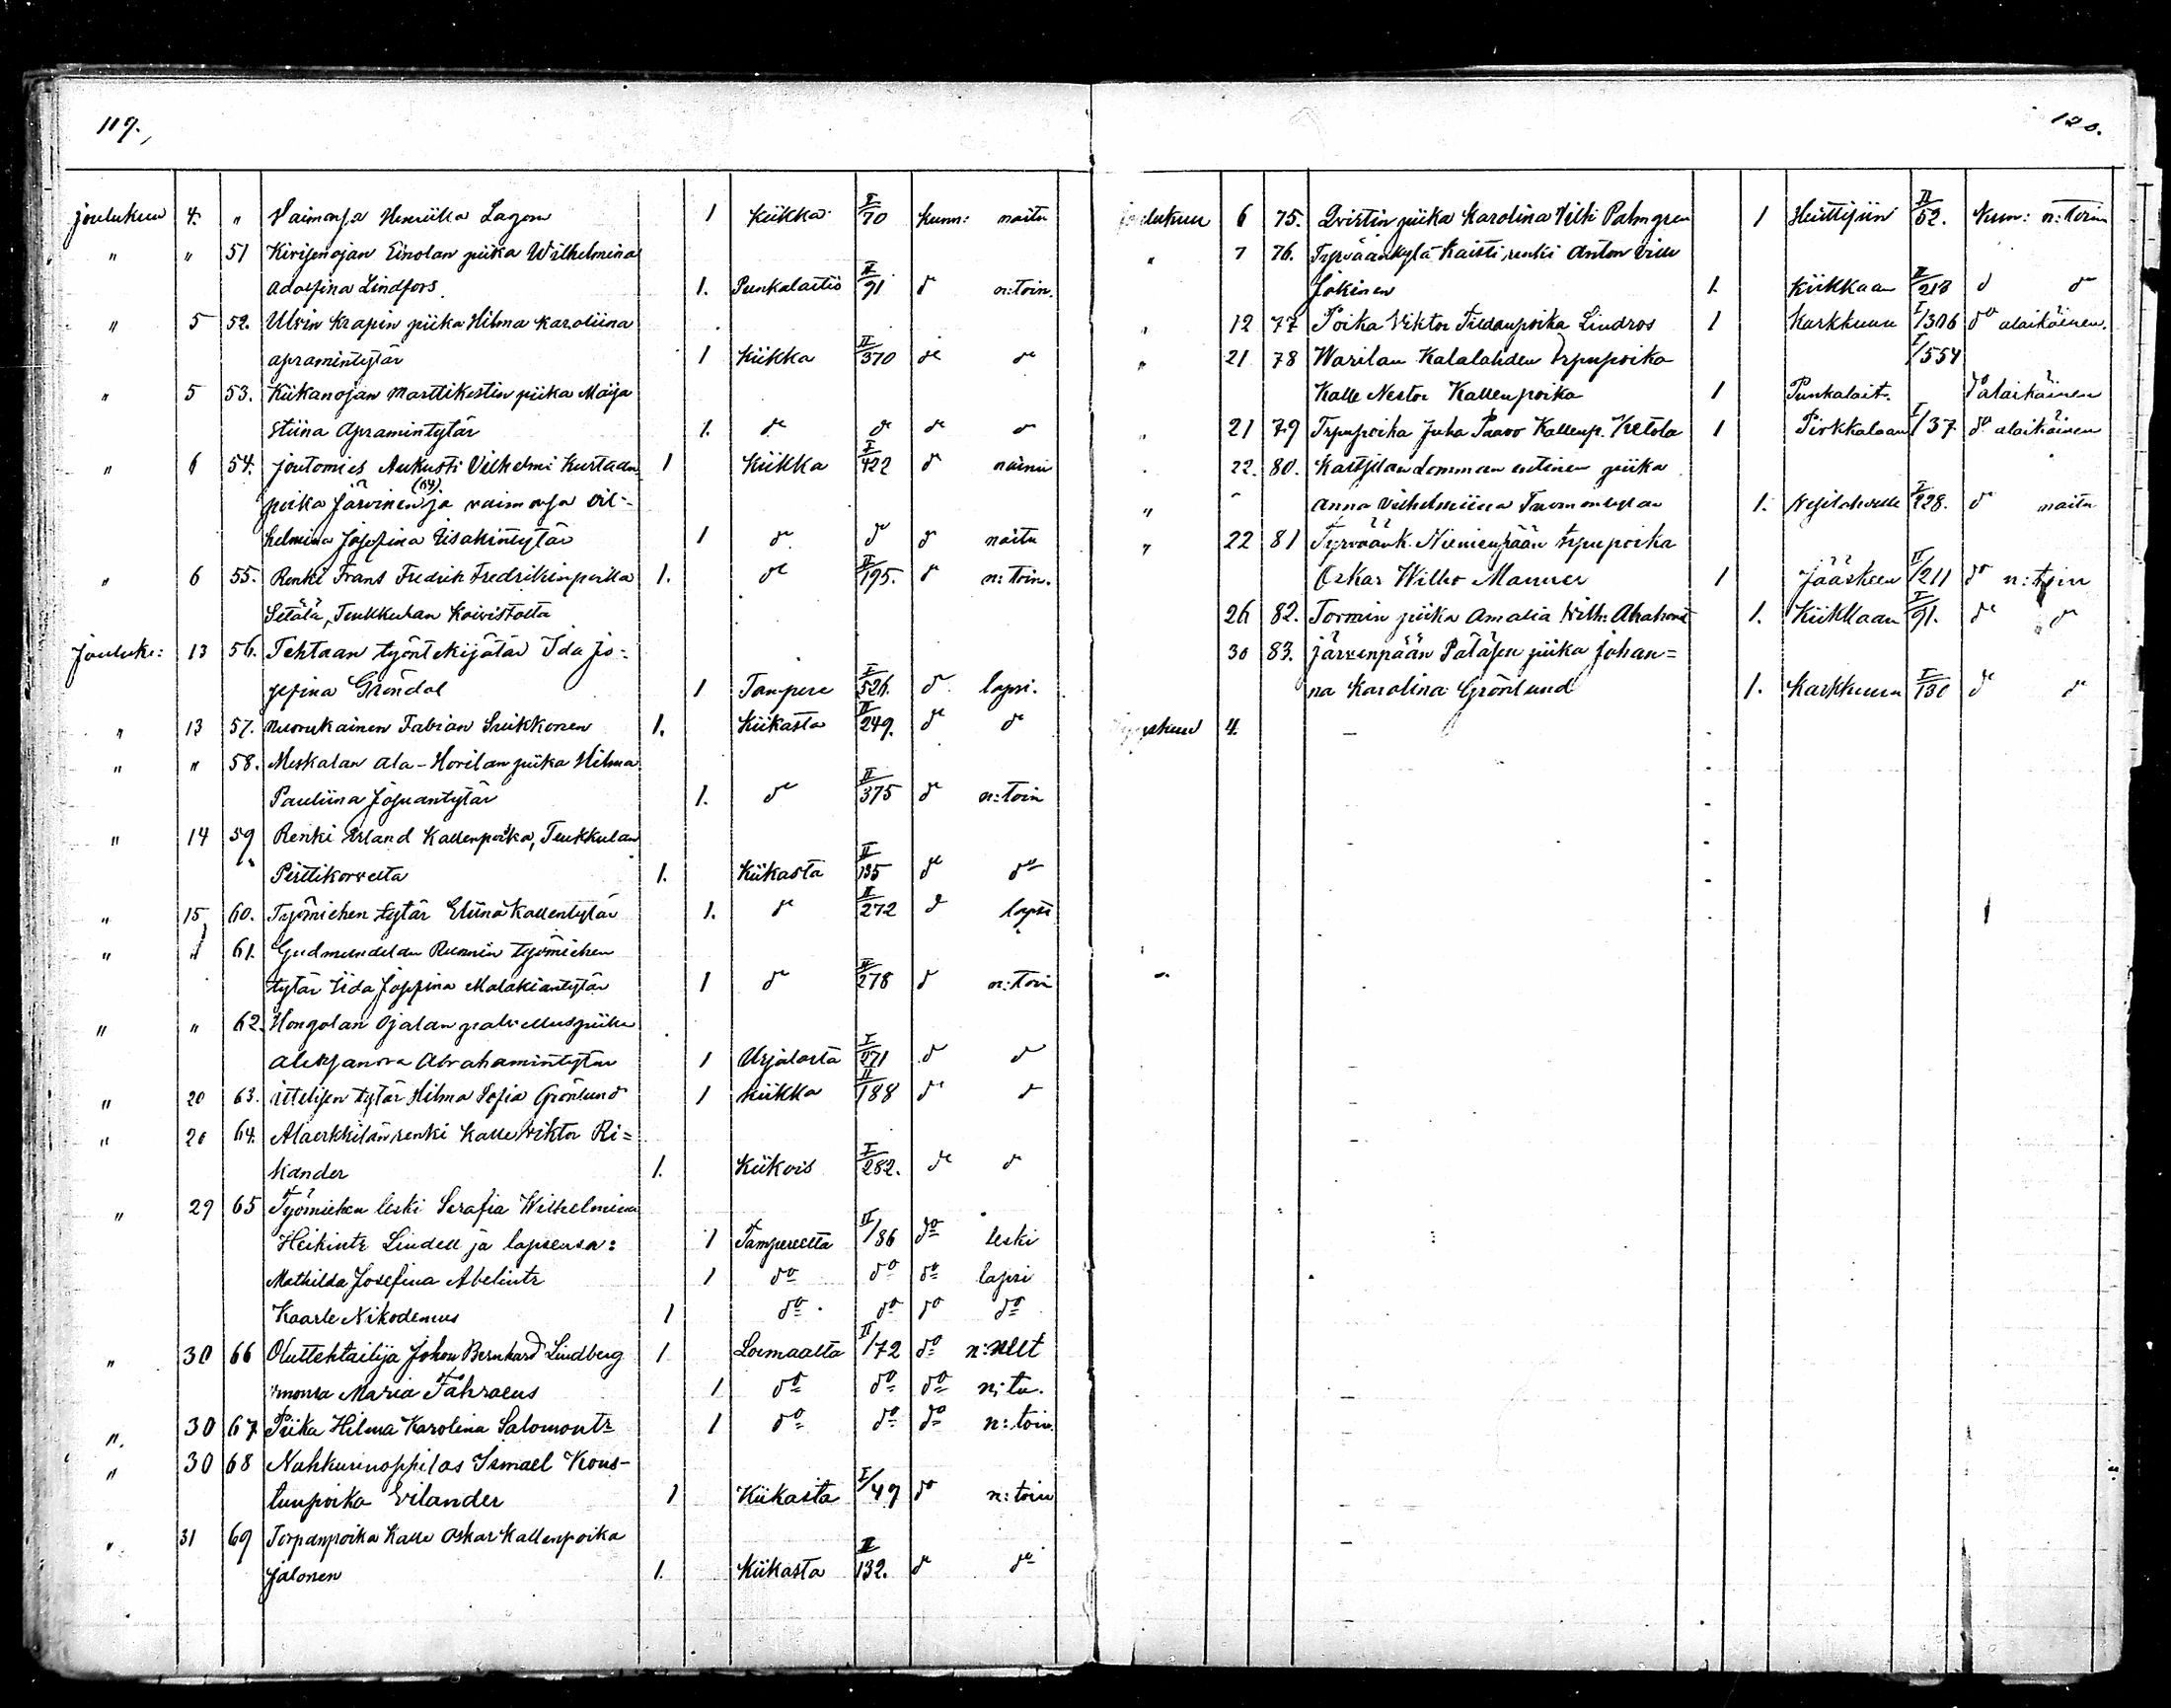 119.
joulukuu 4. " Vaimonsa Henriikka Lagon 1 Kiikka I/70 kunn: naitu
" " 51 Kirisenojan Einolan piika Wilhelmina
Adolfina Lindfors 1. Punkalaitio II/91 do n:toin.
" 5 52. Ulvin Krapin piika Hilma Karoliina
apramintytär 1 Kiikka II/370 do do
" 5 53. Kiikanojan Marttikestin piika Maija
Stiina Apramintytär 1. do do do do
" 6 54. joutomies Aukusti Vilhelmi Kustaan 1 Kiikka I/422 do nainu
poika Järvinen (64) ja vaimonsa Vil-
helmina Josefina Eisakintytär 1 do do do naitu
" 6 55. Renki Frans Fredrik Fredrikinpoika 1. do II/195. do n:toin.
Setälä, Teukkulan Koivistolta
Jouluku: 13 56. Tehtaan työntekijätär Ida Jo-
sefina Gröndal 1 Tampere I/526. do lapsi.
" 13 57. nuorukainen Fabian Suikkonen 1. Kiikasta II/249. do do
" " 58. Meskalan Ala-Horilan piika Hilma
Pauliina Josuantytär 1. do II/375 do n:toin
" 14 59 Renki Erland Kallenpoika, Teukkulan
Perttikorvelta 1. Kiikasta II/135 do do
" 15 60. Työmiehen tytär Eliina Kallentytär 1. do II/272 do lapsi
" " 61. Gudmundelan Runnin työmiehen
tytär Iida Josefina Malakiantytär 1 do II/278 do n:toin
" " 62. Hongolan Ojalan palvelluspiika
Aleksandra Abrahamintytär 1 Urjalasta I/271 do do
" 20 63. itellisen tytär Hilma Sofia Grönlund 1 Kiikka II/188 do do
" 20 64. Alaerkkilän renki Kalle Viktor Ri=
kander 1. Kiikois I/282. do do
" 29 65 Työmiehen leski Serafia Wilhelmiina
Heikintr Lindell ja lapsensa: 1 Tampereelta II/86 do leski
Mathilda Josefina Abelintr 1 do do do lapsi
Kaarle Nikodemus 1 do do do do
" 30 66 Oluttehtailija Johan Bernhard Lindberg 1 Loimaalta II/72 do n:nut
vmonsa Maria Fahraeus 1 do do do n:tu.
" 30 67 Piika Hilma Karolina Salomontr 1 do do do n:toin.
" 30 68 Nahkurinoppilas Ismael Kons-
tunpoika Vilander 1 Kiikasta I/49 do n:toin
" 31 69 Torpanpoika Kalle Oskar Kallenpoika
Jalonen 1. Kiikasta II/132. do do
120.
joulukuu 6 75. Qvistin piika Karolina Vilki Palmgren 1 Heittisiin II/52. Kun: n:toin
" 7 76. Tyrväänkylä Kaisti, renki Anton Ville
Jokinen 1. Kiikkaan II/213 do do
" 12 77 Poika Viktor Fildanpoika Lindros 1 Karkkuun I/306 do alaikäinen.
" 21 78 Warilan Kalalahden trpupoika I/554
Kalle Nestor Kallenpoika 1 Punkalait. do alaikäinen
" 21 79 Trpupoika Juha Paavo Kallenp. Ketola 1 Pirkkalaan I/37 do alaikäinen
" 22. 80. Kaltsilan Lemmun entinen piika
" Anna Vilhelmiina Tuomontytär 1. Vesilahdelle I/228. do naitu
" 22 81 Tyrväänk. Niemenpään trpupoika
Oskar Wilho Manner 1 Jääskeen II/211 do n:toin
26 82. Tormin piika Amalia Wilh. Abrahamt 1. Kiikkaan I/91. do do
30 83. järvenpään Patäsen piika Johan=
na Karolina Grönlund 1. Karkkuun I/130 do do
4.